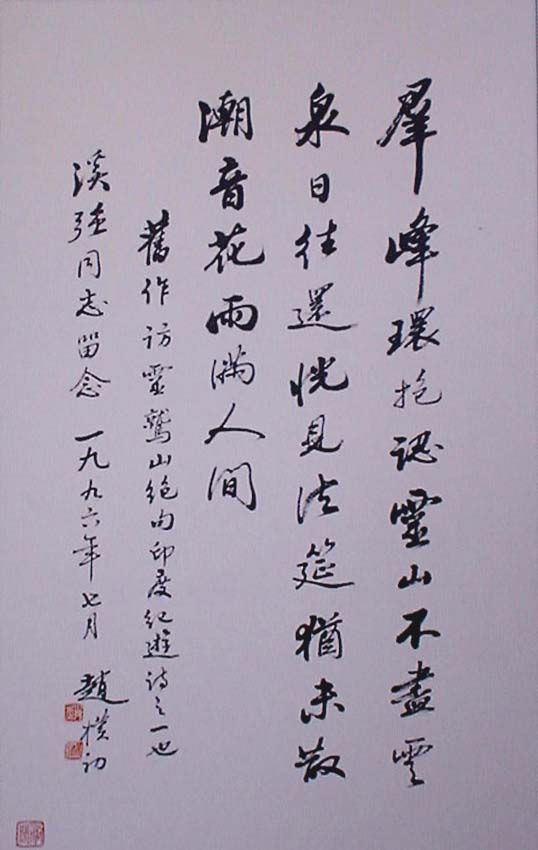 羣峰環抱認靈山不盡雲
泉日往還恍見法筵猶未散
潮音花雨滿人間
舊作訪靈鷲山絕句印度紀遊詩之一也
漢強同志留念 一九九六年七月 趙樸初